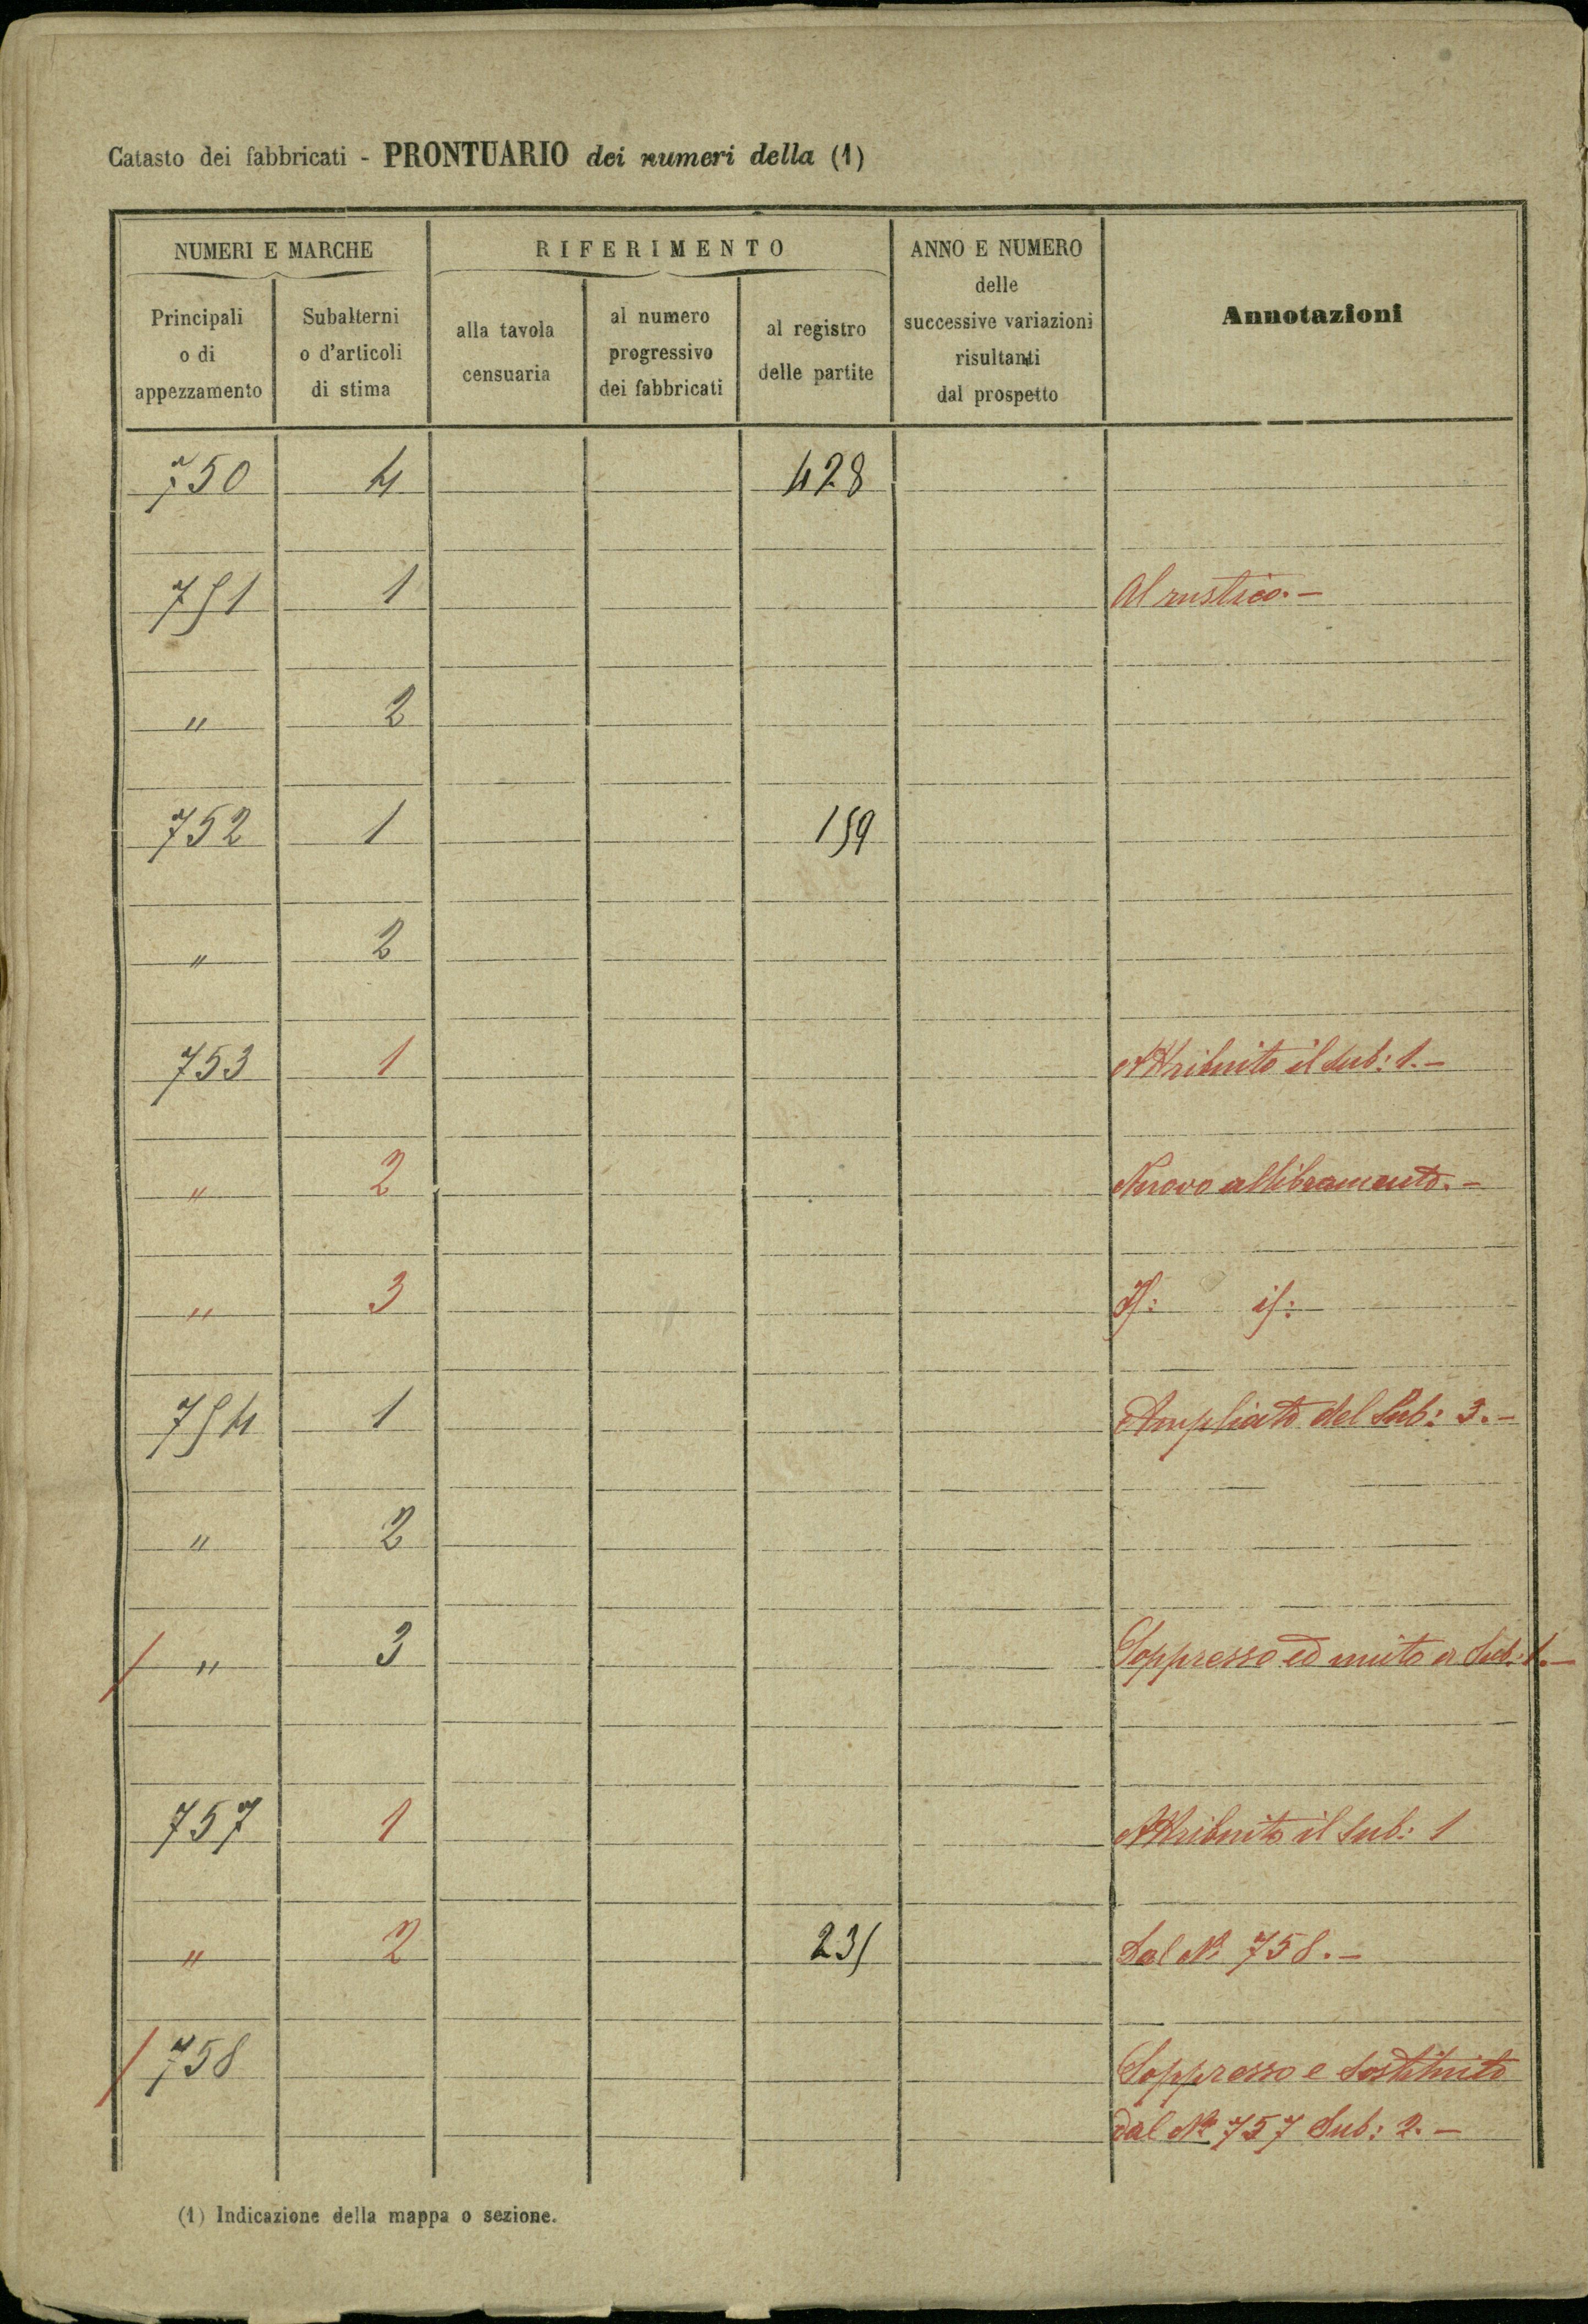 Catasto dei fabbricati - PRONTUARIO dei numeri della (1)
NUMERI E MARCHE
RIFERIMENTO
ANNO E NUMERO
delle
successive variazioni
risultanti
dal prospetto
Annotazioni
Principali
o di
appezzamento
Subalterni
o d'articoli
di stima
alla tavola
censuaria
al numero
progressivo
dei fabbricati
al registro
delle partite
750 4 428
751 1 Al rustico.-
" 2
752 1 159
" 2
753 1 Attribuito il sub: 1.-
" 2 Nuovo allibramento.-
" 3 Id: id:
754 1 Ampliato del Sub: 3.-
" 2
/ " 3 Soppresso ed unito a Sub: 1.-
757 1 Attribuito il Sub: 1
" 2 235 Dal No 758.-
/ 758 Soppresso e sostituito
dal No 757 Sub: 2.-
(1) Indicazione della mappa o sezione.